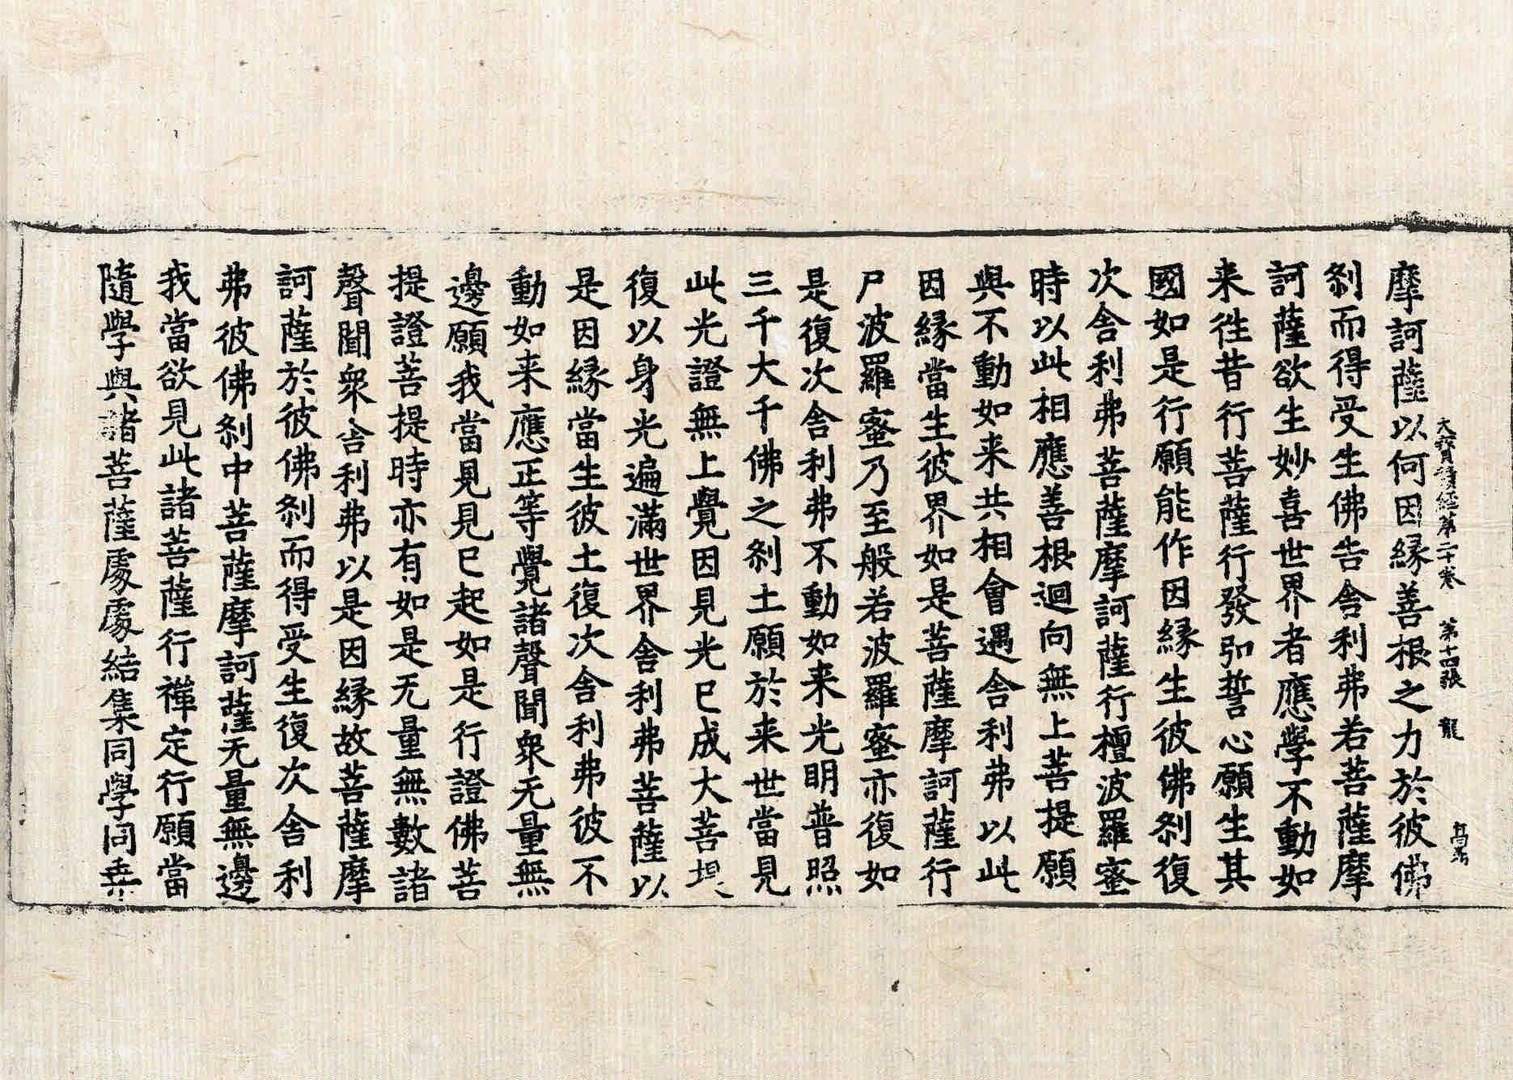 大寶積經第二十卷　第十四張　龍
摩訶薩以何因緣善根之力於彼佛
刹而得受生佛告舍利弗若菩薩摩
訶薩欲生妙喜世界者應學不動如
来徃昔行菩薩行發弘誓心願生其
國如是行願能作因緣生彼佛刹復
次舍利弗菩薩摩訶薩行檀波羅蜜
時以此相應善根迴向無上菩提願
與不動如来共相會遇舍利弗以此
因緣當生彼界如是菩薩摩訶薩行
尸波羅蜜乃至般若波羅蜜亦復如
是復次舍利弗不動如来光明普照
三千大千佛之刹土願於来世當見
此光證無上覺因見光已成大菩提
復以身光遍滿世界舍利弗菩薩以
是因緣當生彼土復次舍利弗彼不
動如来應正等覺諸聲聞衆无量無
邊願我當見見已起如是行證佛菩
提證菩提時亦有如是无量無數諸
聲聞衆舍利弗以是因緣故菩薩摩
訶薩於彼佛刹而得受生復次舍利
弗彼佛刹中菩薩摩訶薩无量無邊
我當欲見此諸菩薩行禪定行願當
隨學與諸菩薩處處結集同學同乗